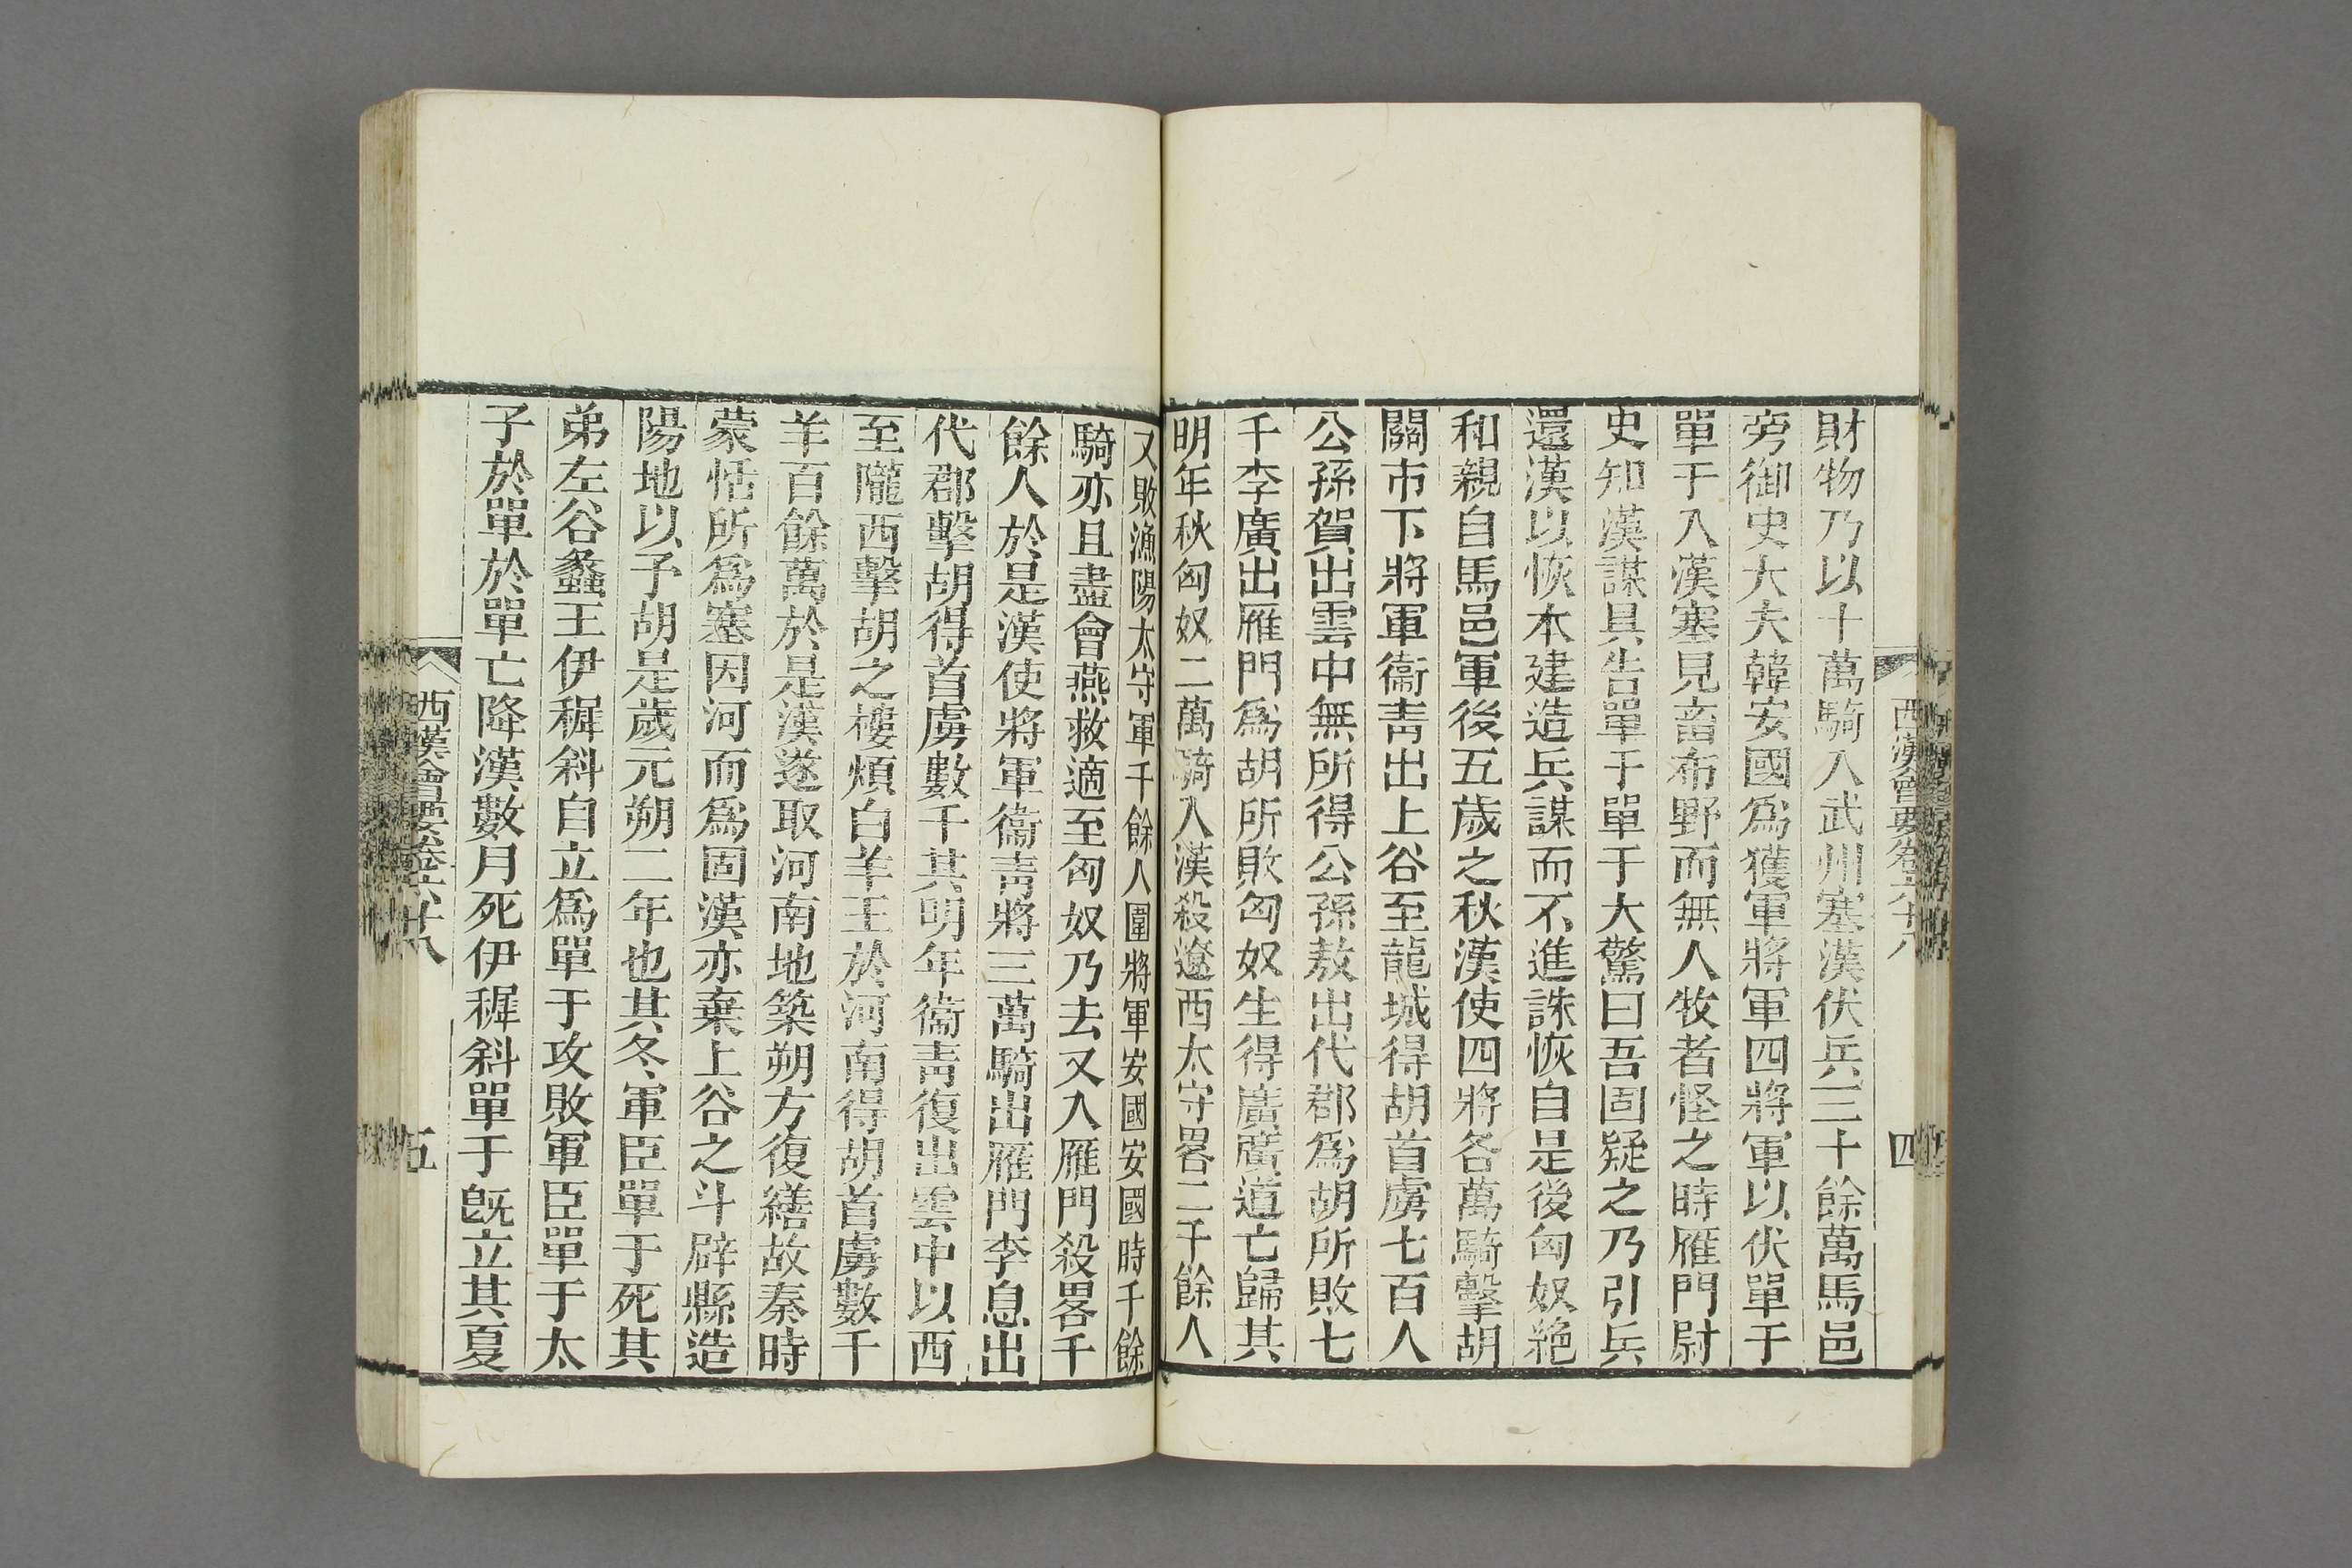 西漢會要卷六十八
四
財物乃以十萬騎入武州塞漢伏兵三十餘萬馬邑
旁御史大夫韓安國爲獲軍將軍四將軍以伏單于
單于入漢塞見畜布野而無人牧者怪之時雁門尉
史知漢謀具告單于單于大驚曰吾固疑之乃引兵
還漢以恢本建造兵謀而不進誅恢自是後匈奴絶
和親自馬邑軍後五歲之秋漢使四將各萬騎擊胡
關市下將軍衞靑出上谷至龍城得胡首虜七百人
公孫賀出雲中無所得公孫敖出代郡爲胡所敗七
千李廣出雁門爲胡所敗匈奴生得廣廣道亡歸其
明年秋匈奴二萬騎入漢殺遼西太守畧二千餘人
又敗漁陽太守軍千餘人圍將軍安國安國時千餘
騎亦且盡會燕救適至匈奴乃去又入雁門殺畧千
餘人於是漢使將軍衞靑將三萬騎出雁門李息出
代郡擊胡得首虜數千其明年衞靑復出雲中以西
至隴西擊胡之樓煩白羊王於河南得胡首虜數千
羊百餘萬於是漢遂取河南地築朔方復繕故秦時
蒙恬所爲塞因河而爲固漢亦棄上谷之斗辟縣造
陽地以予胡是歲元朔二年也其冬軍臣單于死其
弟左谷蠡王伊穉斜自立爲單于攻敗軍臣單于太
子於單於單亡降漢數月死伊穉斜單于旣立其夏
西漢會要卷六十八
五